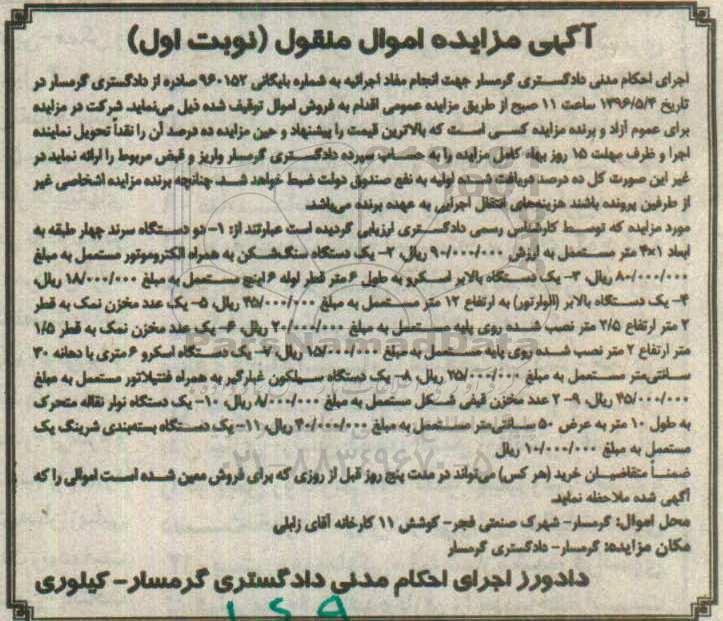 آگهی مزایده اموال منقول (نوبت اول)
اجرای احکام مدنی دادگستری گرمسار جهت انجام مفاد اجرائیه به شماره بایگانی ۹۶۰۱۵۲ صادره از دادگستری گرمسار در
تاریخ ۱۳۹۶/۵/۴ ساعت ۱۱ صبح از طریق مزایده عمومی اقدام به فروش اموال توقیف شده ذیل می‌نماید. شرکت در مزایده
برای عموم آزاد و برنده مزایده کسی است که بالاترین قیمت را پیشنهاد و حین مزایده ده درصد آن را نقداً تحویل نماینده
اجرا و ظرف مهلت ۱۵ روز بهاء کامل مزایده را به حساب سپرده دادگستری گرمسار واریز و قبض مربوط را ارائه نماید در
غیر این صورت کل ده درصد دریافت شده اولیه به نفع صندوق دولت ضبط خواهد شد. چنانچه برنده مزایده اشخاصی غیر
از طرفین پرونده باشند هزینه‌های انتقال اجرایی به عهده برنده می‌باشد.
مورد مزایده که توسط کارشناس رسمی دادگستری ارزیابی گردیده است عبارتند از: ۱- دو دستگاه سرند چهار طبقه به
ابعاد ۴×۱ متر مستعمل به ارزش ۹۰/۰۰۰/۰۰۰ ریال، ۲- یک دستگاه سنگ‌شکن به همراه الکتروموتور مستعمل به مبلغ
۸۰/۰۰۰/۰۰۰ ریال، ۳- یک دستگاه بالابر اسکرو به طول ۶ متر قطر لوله ۶ اینچ مستعمل به مبلغ ۱۸/۰۰۰/۰۰۰ ریال،
۴- یک دستگاه بالابر (الواتور) به ارتفاع ۱۲ متر مستعمل به مبلغ ۴۵/۰۰۰/۰۰۰ ریال، ۵- یک عدد مخزن نمک به قطر
۲ متر ارتفاع ۲/۵ متر نصب شده روی پایه مستعمل به مبلغ ۲۰/۰۰۰/۰۰۰ ریال، ۶- یک عدد مخزن نمک به قطر ۱/۵
متر ارتفاع ۲ متر نصب شده روی پایه مستعمل به مبلغ ۱۵/۰۰۰/۰۰۰ ریال، ۷- یک دستگاه اسکرو ۶ متری با دهانه ۳۰
سانتی‌متر مستعمل به مبلغ ۲۵/۰۰۰/۰۰۰ ریال، ۸- یک دستگاه سیلکون غبارگیر به همراه فنتیلاتور مستعمل به مبلغ
۴۵/۰۰۰/۰۰۰ ریال، ۹- ۲ عدد مخزن قیفی شکل مستعمل به مبلغ ۸/۰۰۰/۰۰۰ ریال، ۱۰- یک دستگاه نوار نقاله متحرک
به طول ۱۰ متر به عرض ۵۰ سانتی‌متر مستعمل به مبلغ ۴۰/۰۰۰/۰۰۰ ریال، ۱۱- یک دستگاه بسته‌بندی شرینگ پک
مستعمل به مبلغ ۱۰/۰۰۰/۰۰۰ ریال
ضمناً متقاضیان خرید (هر کس) می‌تواند در مدت پنج روز قبل از روزی که برای فروش معین شده است اموالی را که
آگهی شده ملاحظه نماید.
محل اموال: گرمسار- شهرک صنعتی فجر- کوشش ۱۱ کارخانه آقای زابلی
مکان مزایده: گرمسار- دادگستری گرمسار
دادورز اجرای احکام مدنی دادگستری گرمسار- کیلوری
ParsNamadData
۰۲۱-۸۸۳۴۹۶۷۰-۵